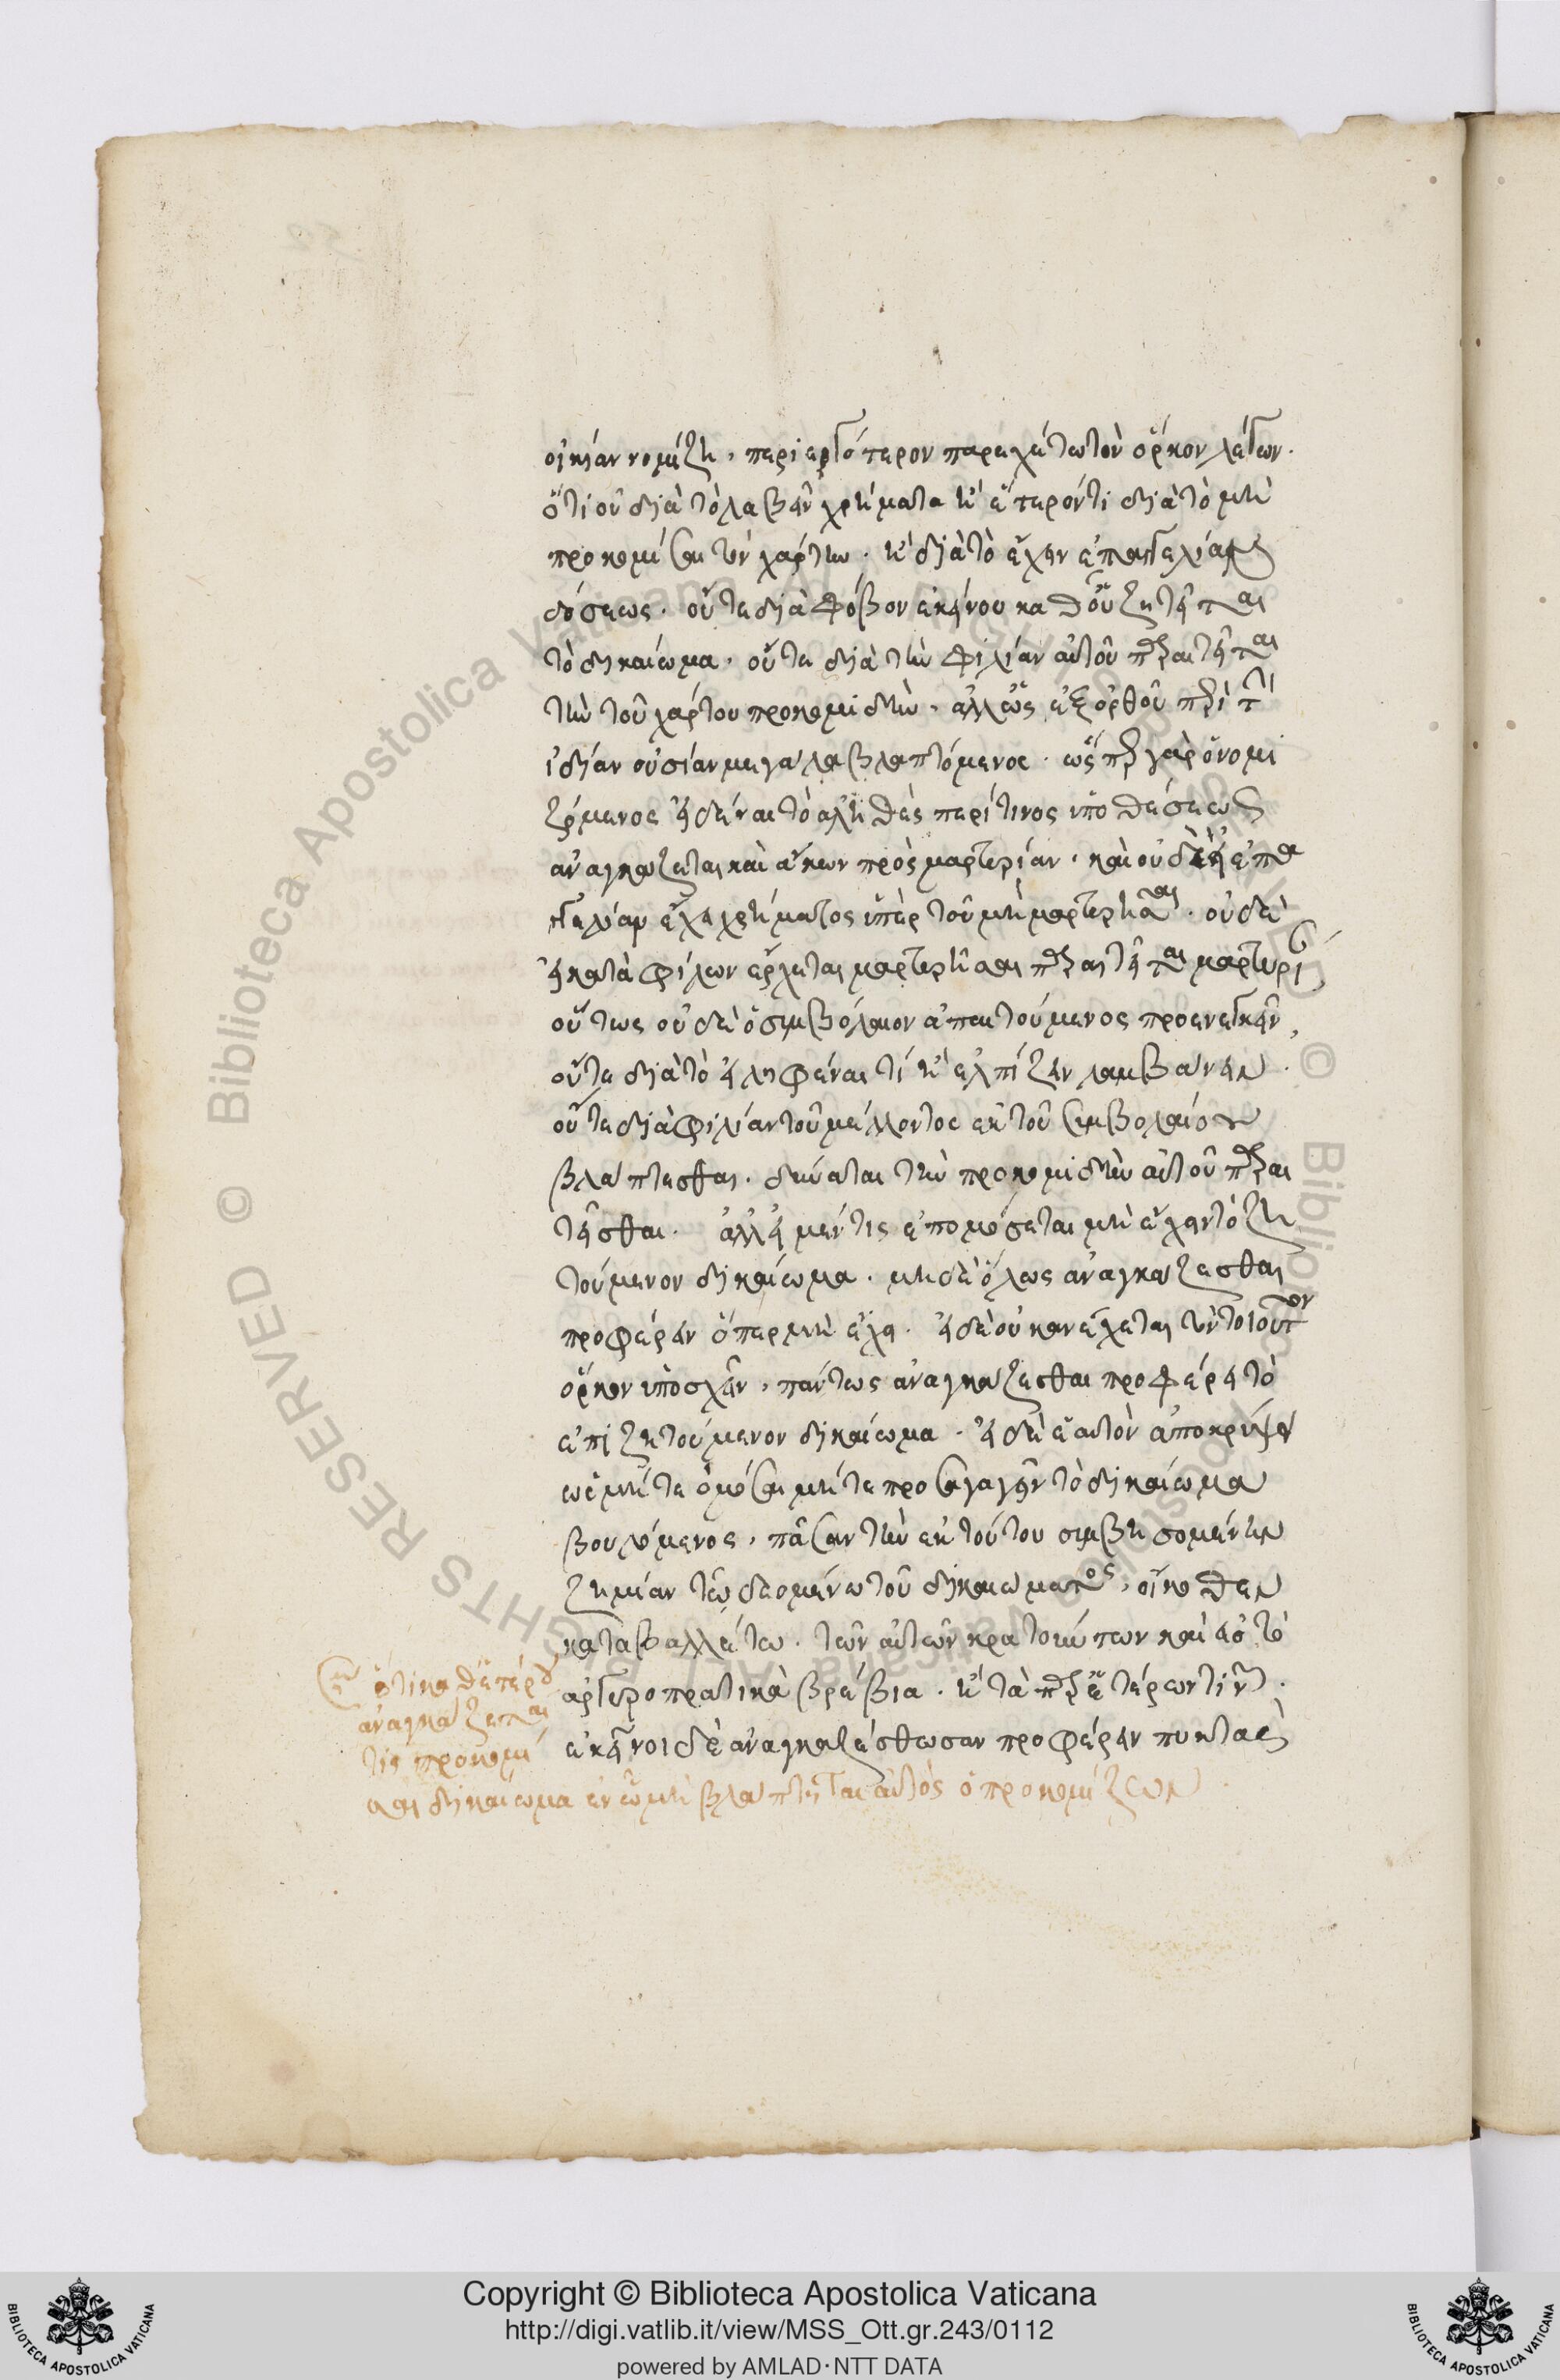 οἰκίαν νομίζη, περιεργότερον παρεχέτω τὸν ὅρκον λέγων.
ὅτι οὐ διὰ τὸ λαβεῖν χρήματα ἢ ἕτερόν τι διὰ τὸ μὴ
προκομίσαι τὸν χάρτην. ἢ διὰ τὸ ἔχειν ἐπαγγελίαν
δόσεως. οὔτε διὰ φόβον ἐκείνου καθ οὗ ζητεῖται
τὸ δικαίωμα. οὔτε διὰ τὴν φιλίαν αὐτοῦ παραιτεῖται
τὴν τοῦ χάρτου προκομιδήν. ἀλλ ὡς ἐξ ὀρθοῦ περὶ τὴν
ἰδίαν οὐσίαν μεγάλα βλαπτόμενος. ὥσπερ γὰρ ὁ νομι
ζόμενος εἰδέναι τὸ ἀληθὲς περί τινος ὑποθέσεως
ἀναγκάζεται καὶ ἄκων πρὸς μαρτυρίαν. καὶ οὐδὲ εἰ ἐπα
γγελίαν ἔχει χρήματος ὑπὲρ τοῦ μὴ μαρτυρῆσαι. οὐδὲ
εἰ κατὰ φίλων ἔρχεται μαρτυρῆσαι παραιτεῖται μαρτυρῆσαι
οὕτως οὐδὲ ὁ συμβόλαιον ἀπαιτούμενος προενεγκεῖν,
οὔτε διὰ τὸ εἰληφέναι τί ἢ ἐλπίζειν λαμβάνειν.
οὔτε διὰ φιλίαν τοῦ μέλλοντος ἐκ τοῦ συμβολαίου
βλάπτεσθαι. δύναται τὴν προκομιδὴν αὐτοῦ παραι
τεῖσθαι. ἀλλ εἰ μέν τις ἐπομόσεται μὴ ἔχειν τὸ ζη
τούμενον δικαίωμα. μηδὲ ὅλως ἀναγκάζεσθαι
προφέρειν ὅπερ μὴ ἔχει. εἰ δὲ οὐκ ἀνέχεται τὸν τοιοῦτον
ὅρκον ὑποσχεῖν, πάντως ἀναγκάζεσθαι προφέρει τὸ
ἐπιζητούμενον δικαίωμα. εἰ δὲ ἑαυτὸν ἀποκρύψει
ὡς μήτε ὀμόσαι μήτε προσαγαγεῖν τὸ δικαίωμα
βουλόμενος, πᾶσαν τὴν ἐκ τούτου συμβησομένην
ζημίαν τῷ δεομένω τοῦ δικαιώματος, οἴκοθεν
καταβαλλέτω. τῶν αὐτῶν κρατούντων καὶ εἰς τὸ
ἀργυροπρατικὰ βρέβια. ἢ τὰ παρ ἑτέρων τινῶν.
ἐκεῖνοι δὲ ἀναγκαζέσθωσαν προφέρειν πυκτὰς
ση ὅτι καθ ἑτέρου
ἀναγκάζεται
τις προκομί
σαι δικαίωμα ἐν ὧ μὴ βλάπτηται αὐτὸς ὁ προκομίζων.
Copyright © Biblioteca Apostolica Vaticana
http://digi.vatlib.it/view/MSS_Ott.gr.243/0112
powered by AMLAD·NTT DATA